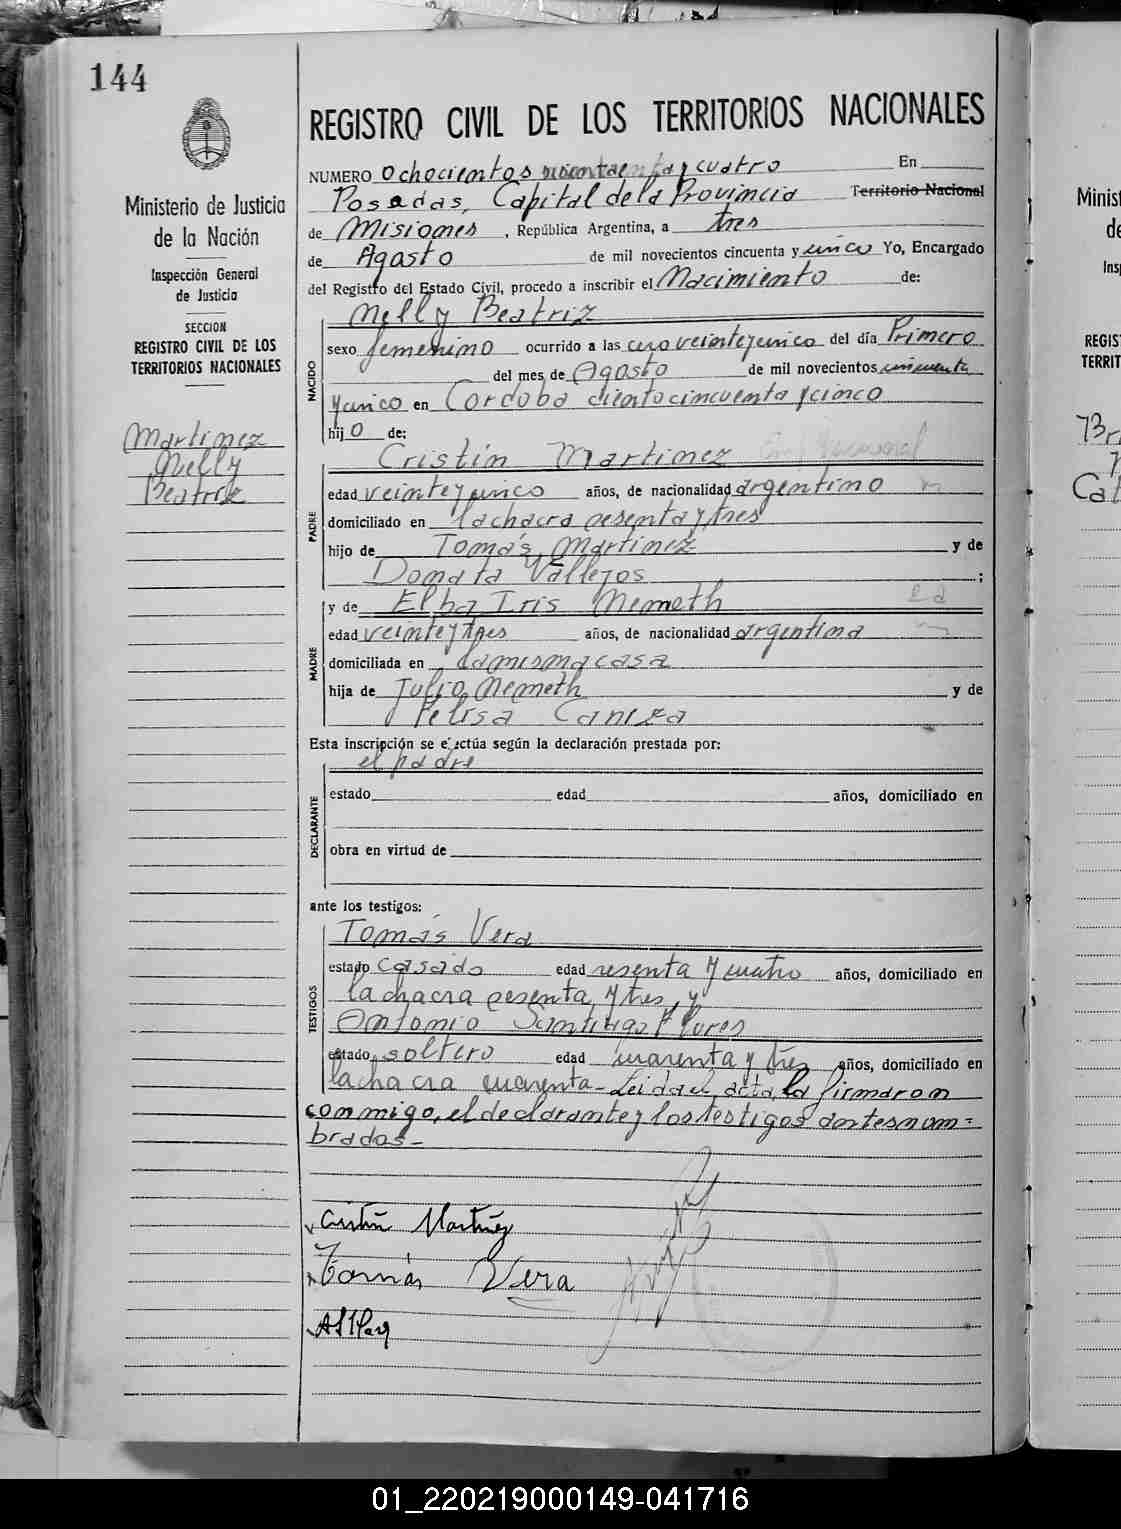 144
REGISTRO CIVIL DE LOS TERRITORIOS NACIONALES
Ministerio de Justicia
de la Nación
Inspección General
de Justicia
SECCION
REGISTRO CIVIL DE LOS
TERRITORIOS NACIONALES
Martinez
Nelly
Beatriz
NUMERO ochocientos y cuatro En
Posadas, Capital de la Provincia Territorio Nacional
de Misiones, República Argentina, a tres
de Agosto de mil novecientos cincuenta y cinco Yo, Encargado
del Registro del Estado Civil, procedo a inscribir el Nacimiento de:
NACIDO
Nelly Beatriz
sexo femenino ocurrido a las cero veinteycinco del día Primero
del mes de Agosto de mil novecientos cincuenta
y cinco en Cordoba ciento cincuenta y cinco
hijo de:
PADRE
Cristín Martinez
edad veinteycinco años, de nacionalidad argentino
domiciliado en la chacra sesenta y tres
hijo de Tomás Martinez y de
Donata Vallejos ;
MADRE
y de Elba Iris Nemeth
edad veinteytres años, de nacionalidad argentina
domiciliada en la misma casa
hija de Julio Nemeth y de
Felisa Caniza
Esta inscripción se ejectúa según la declaración prestada por:
el padre
DECLARANTE
estado edad años, domiciliado en
obra en virtud de
ante los testigos:
TESTIGOS
Tomás Vera
estado casado edad sesenta y cuatro años, domiciliado en
la chacra sesenta y tres, y
Antonio Santiago Flores
estado soltero edad cuarenta y tres años, domiciliado en
la chacra cuarenta - Leida el acta, la firmaron
conmigo, el declarante y los testigos antesnom=
brados-
Cristín Martinez
Tomás Vera
Minist
de
Ins
REGIS
TERRIT
01_220219000149-041716